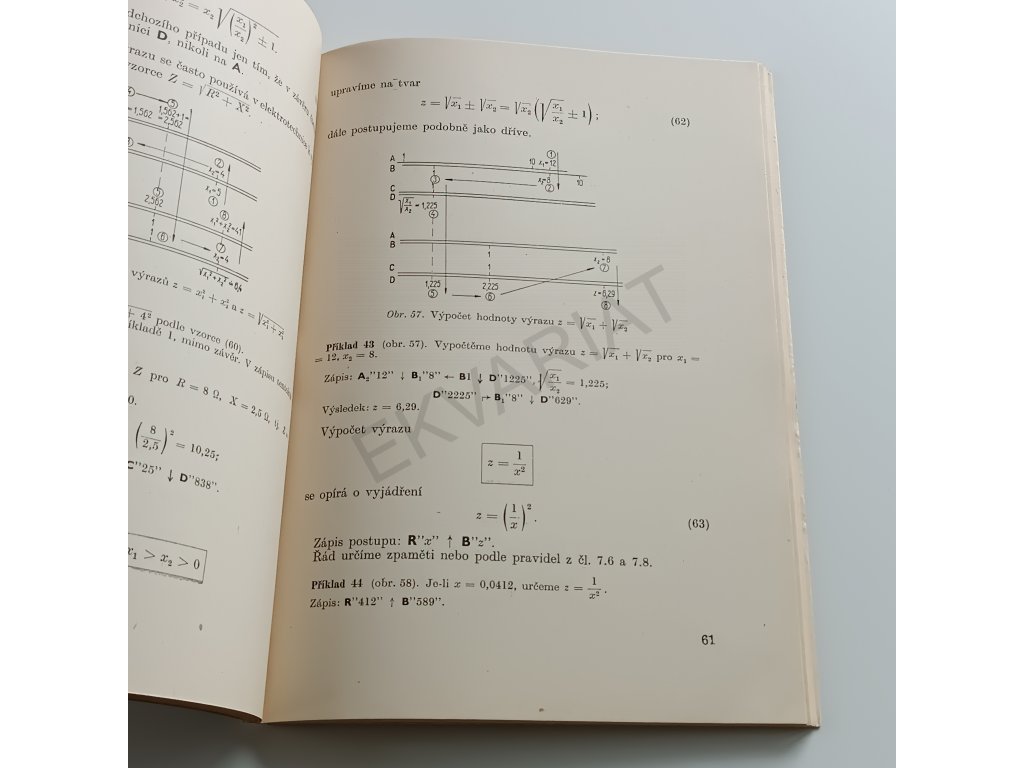 x₂ = x₂√((x₁/x₂)² ± 1.
dchozího případu jen tím, že v
nici D, nikoli na A.
razu se často používá v elektrotechnice
vzorce Z = √R² + X².
⑤
1,562+1=
=1,562 =2,562
②
x₂=4
x₁=5
①
⑤
2,562
⑧
x₁²+x₂²=41
1 1
⑥
⑦
x₂=4
1 1
√x₁²+x₂²=6,4
výrazů z = x₁² + x₂² a z = √x₁² + x₂²
+ 4² podle vzorce (60).
íkladě 1, mimo závěr. V zápisu
Z pro R = 8 Ω, X = 2,5 Ω, tj.
0.
(8/2,5)² = 10,25;
C"25" ↓ D"838".
x₁ > x₂ > 0
upravíme na tvar
z = √x₁ ± √x₂ = √x₂ (√(x₁/x₂) ± 1) ; (62)
dále postupujeme podobně jako dříve.
A 1 10 x₁=12 ①
B x₂=8 10
③ ②
C
D
√(x₁/x₂) = 1,225
④
A
B
1 x₂=8
1 ⑦
C
D
1,225 2,225 z=6,29
⑤ ⑥ ⑧
Obr. 57. Výpočet hodnoty výrazu z = √x₁ + √x₂
Příklad 43 (obr. 57). Vypočtěme hodnotu výrazu z = √x₁ + √x₂ pro x₁ =
= 12, x₂ = 8.
Zápis: A₂"12" ↓ B₁"8" ← B1 ↓ D"1225", √(x₁/x₂) = 1,225;
D"2225" → B₁"8" ↓ D"629".
Výsledek: z = 6,29.
Výpočet výrazu
z = 1/x²
se opírá o vyjádření
z = (1/x)². (63)
Zápis postupu: R"x" ↑ B"z".
Řád určíme zpaměti nebo podle pravidel z čl. 7.6 a 7.8.
Příklad 44 (obr. 58). Je-li x = 0,0412, určeme z = 1/x².
Zápis: R"412" ↑ B"589".
61
EKVARIAT